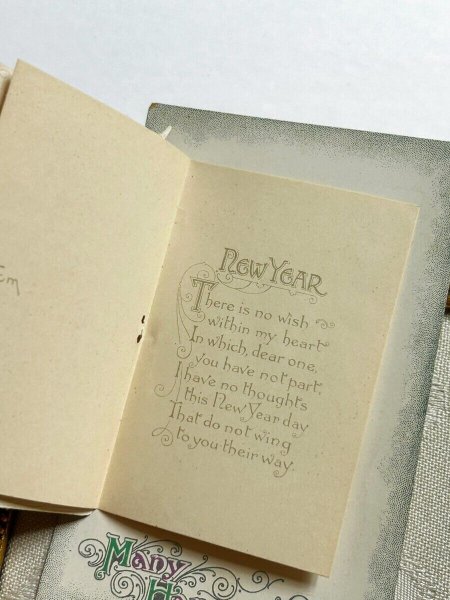 Em
NEW YEAR
There is no wish
within my heart
In which, dear one,
you have not part,
I have no thoughts
this New Year day
That do not wing
to you their way.
Many